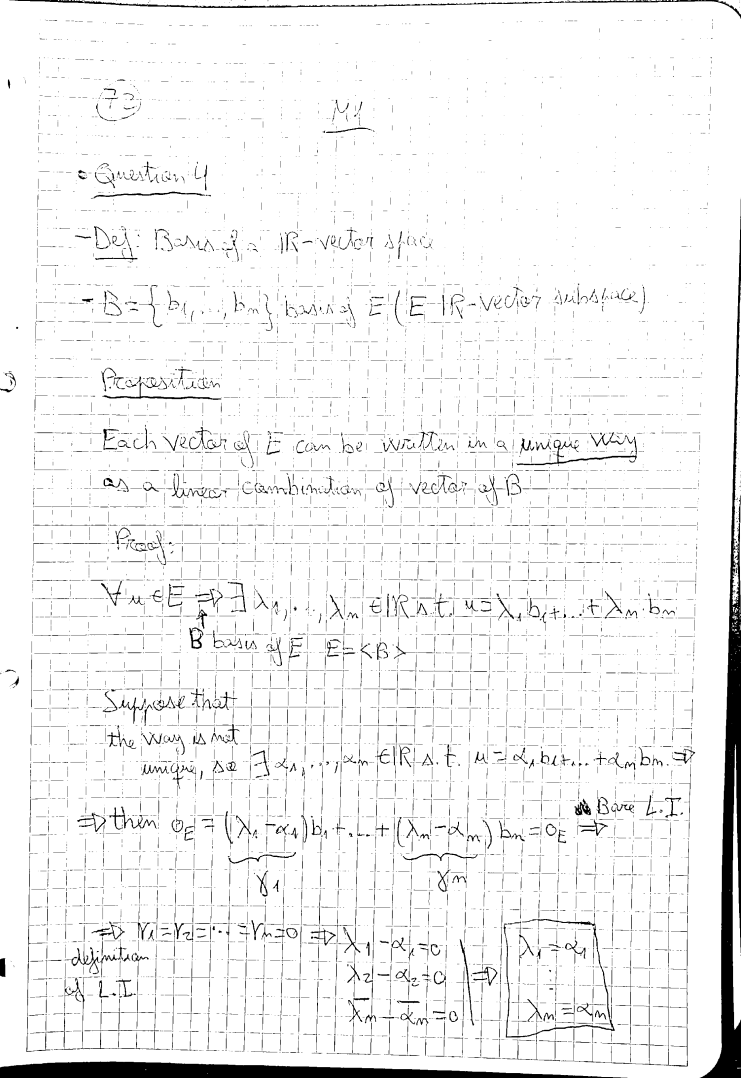 73
M1
• Question 4
- Def: Basis of a IR-vector space
- B = {b₁, ..., bₙ} basis of E (E IR-vector subspace)
Proposition
Each vector of E can be written in a unique way
as a linear combination of vector of B
Proof:
∀u ∈ E ⇒ ∃ λ₁, ..., λₙ ∈ IR s.t. u = λ₁b₁ + ... + λₙ·bₙ
↑
B basis of E E = <B>
Suppose that
the way is not
unique, so ∃ α₁, ..., αₙ ∈ IR s.t. u = α₁b₁ + ... + αₙbₙ ⇒
B are L.I.
⇒ then 0_E = (λ₁ - α₁)b₁ + ... + (λₙ - αₙ)bₙ = 0_E ⇒
γ₁ γₙ
⇒ γ₁ = γ₂ = ... = γₙ = 0 ⇒ λ₁ - α₁ = 0
definition
of L.I.
λ₂ - α₂ = 0 ⇒
λₙ - αₙ = 0
λ₁ = α₁
⋮
λₙ = αₙ